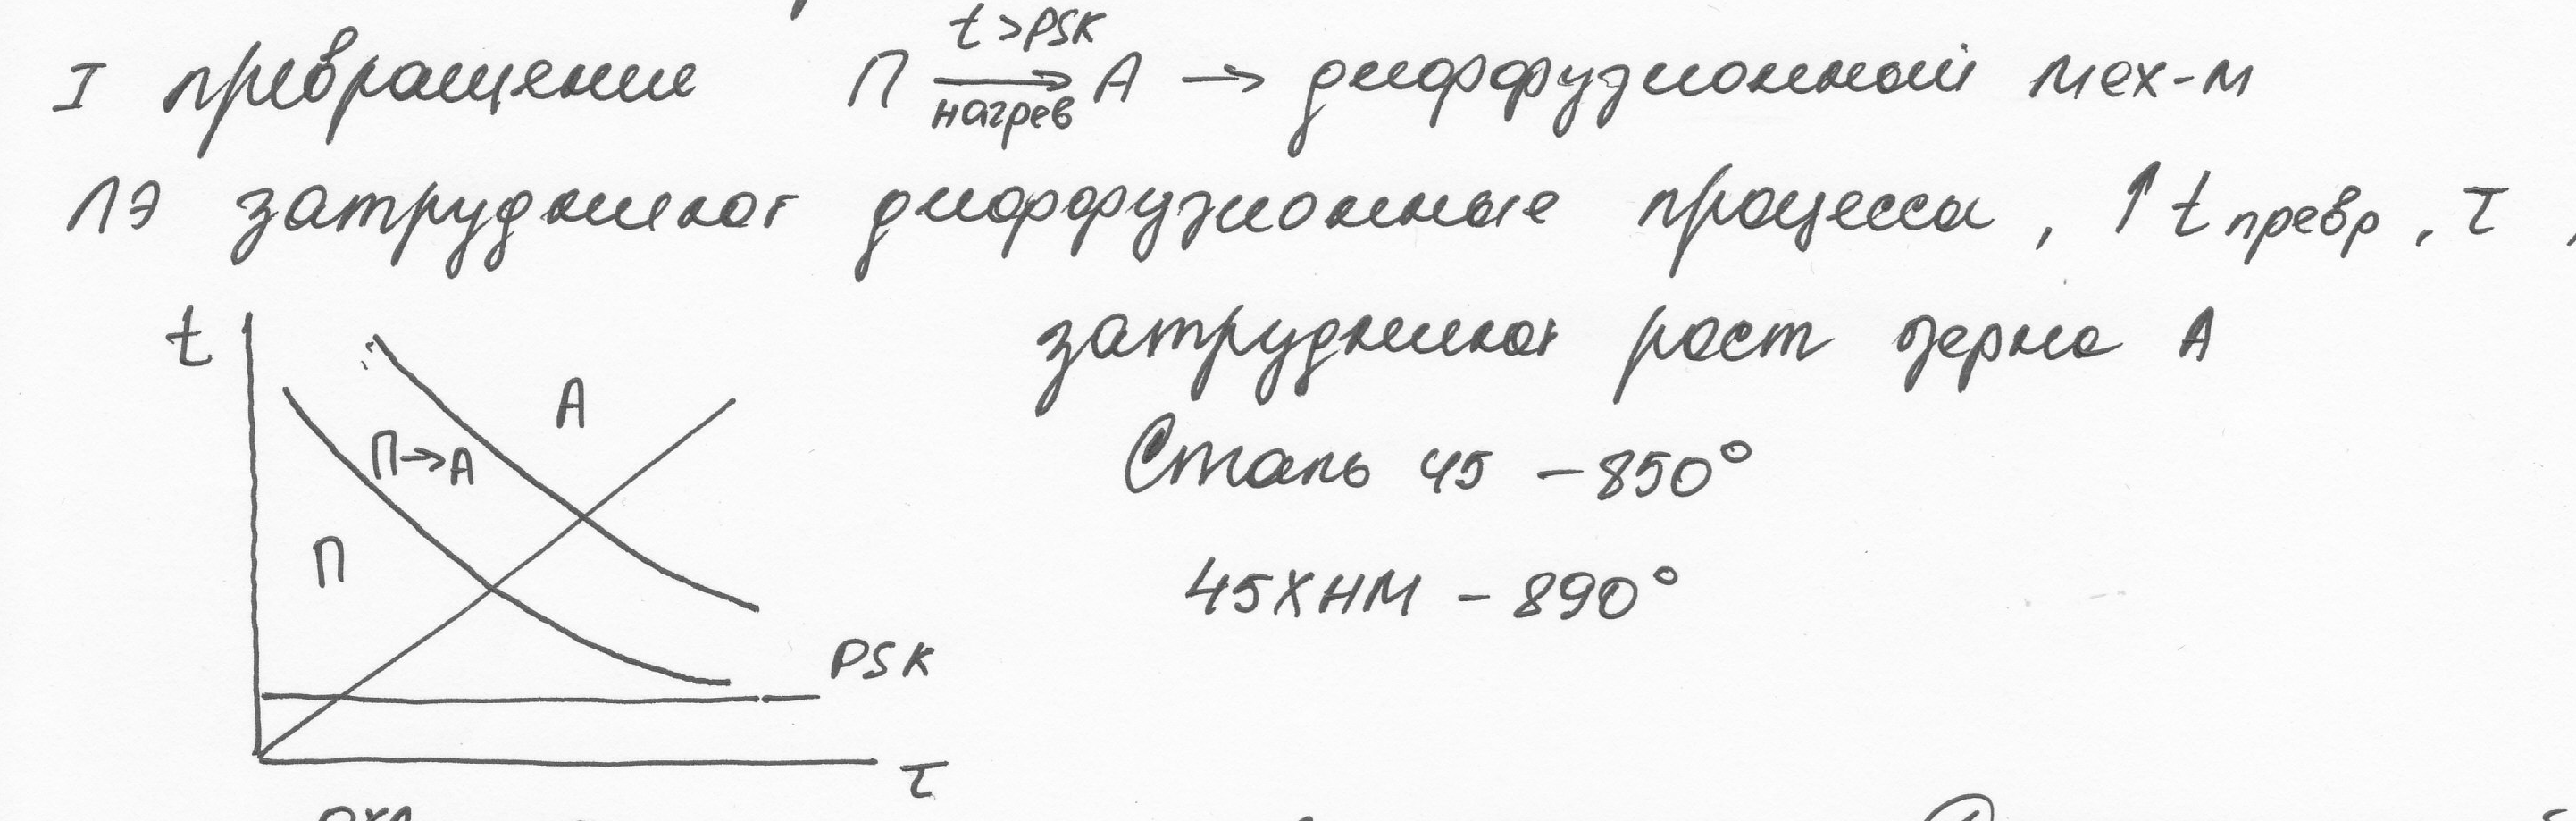 t > PSK
I превращение П → А → диффузионный мех-м
нагрев
ЛЭ затрудняют диффузионные процессы, ↑ t превр, τ,
затрудняют рост зерна А
t
А
П→А
П
PSK
τ
Сталь 45 – 850°
45ХНМ – 890°
охл